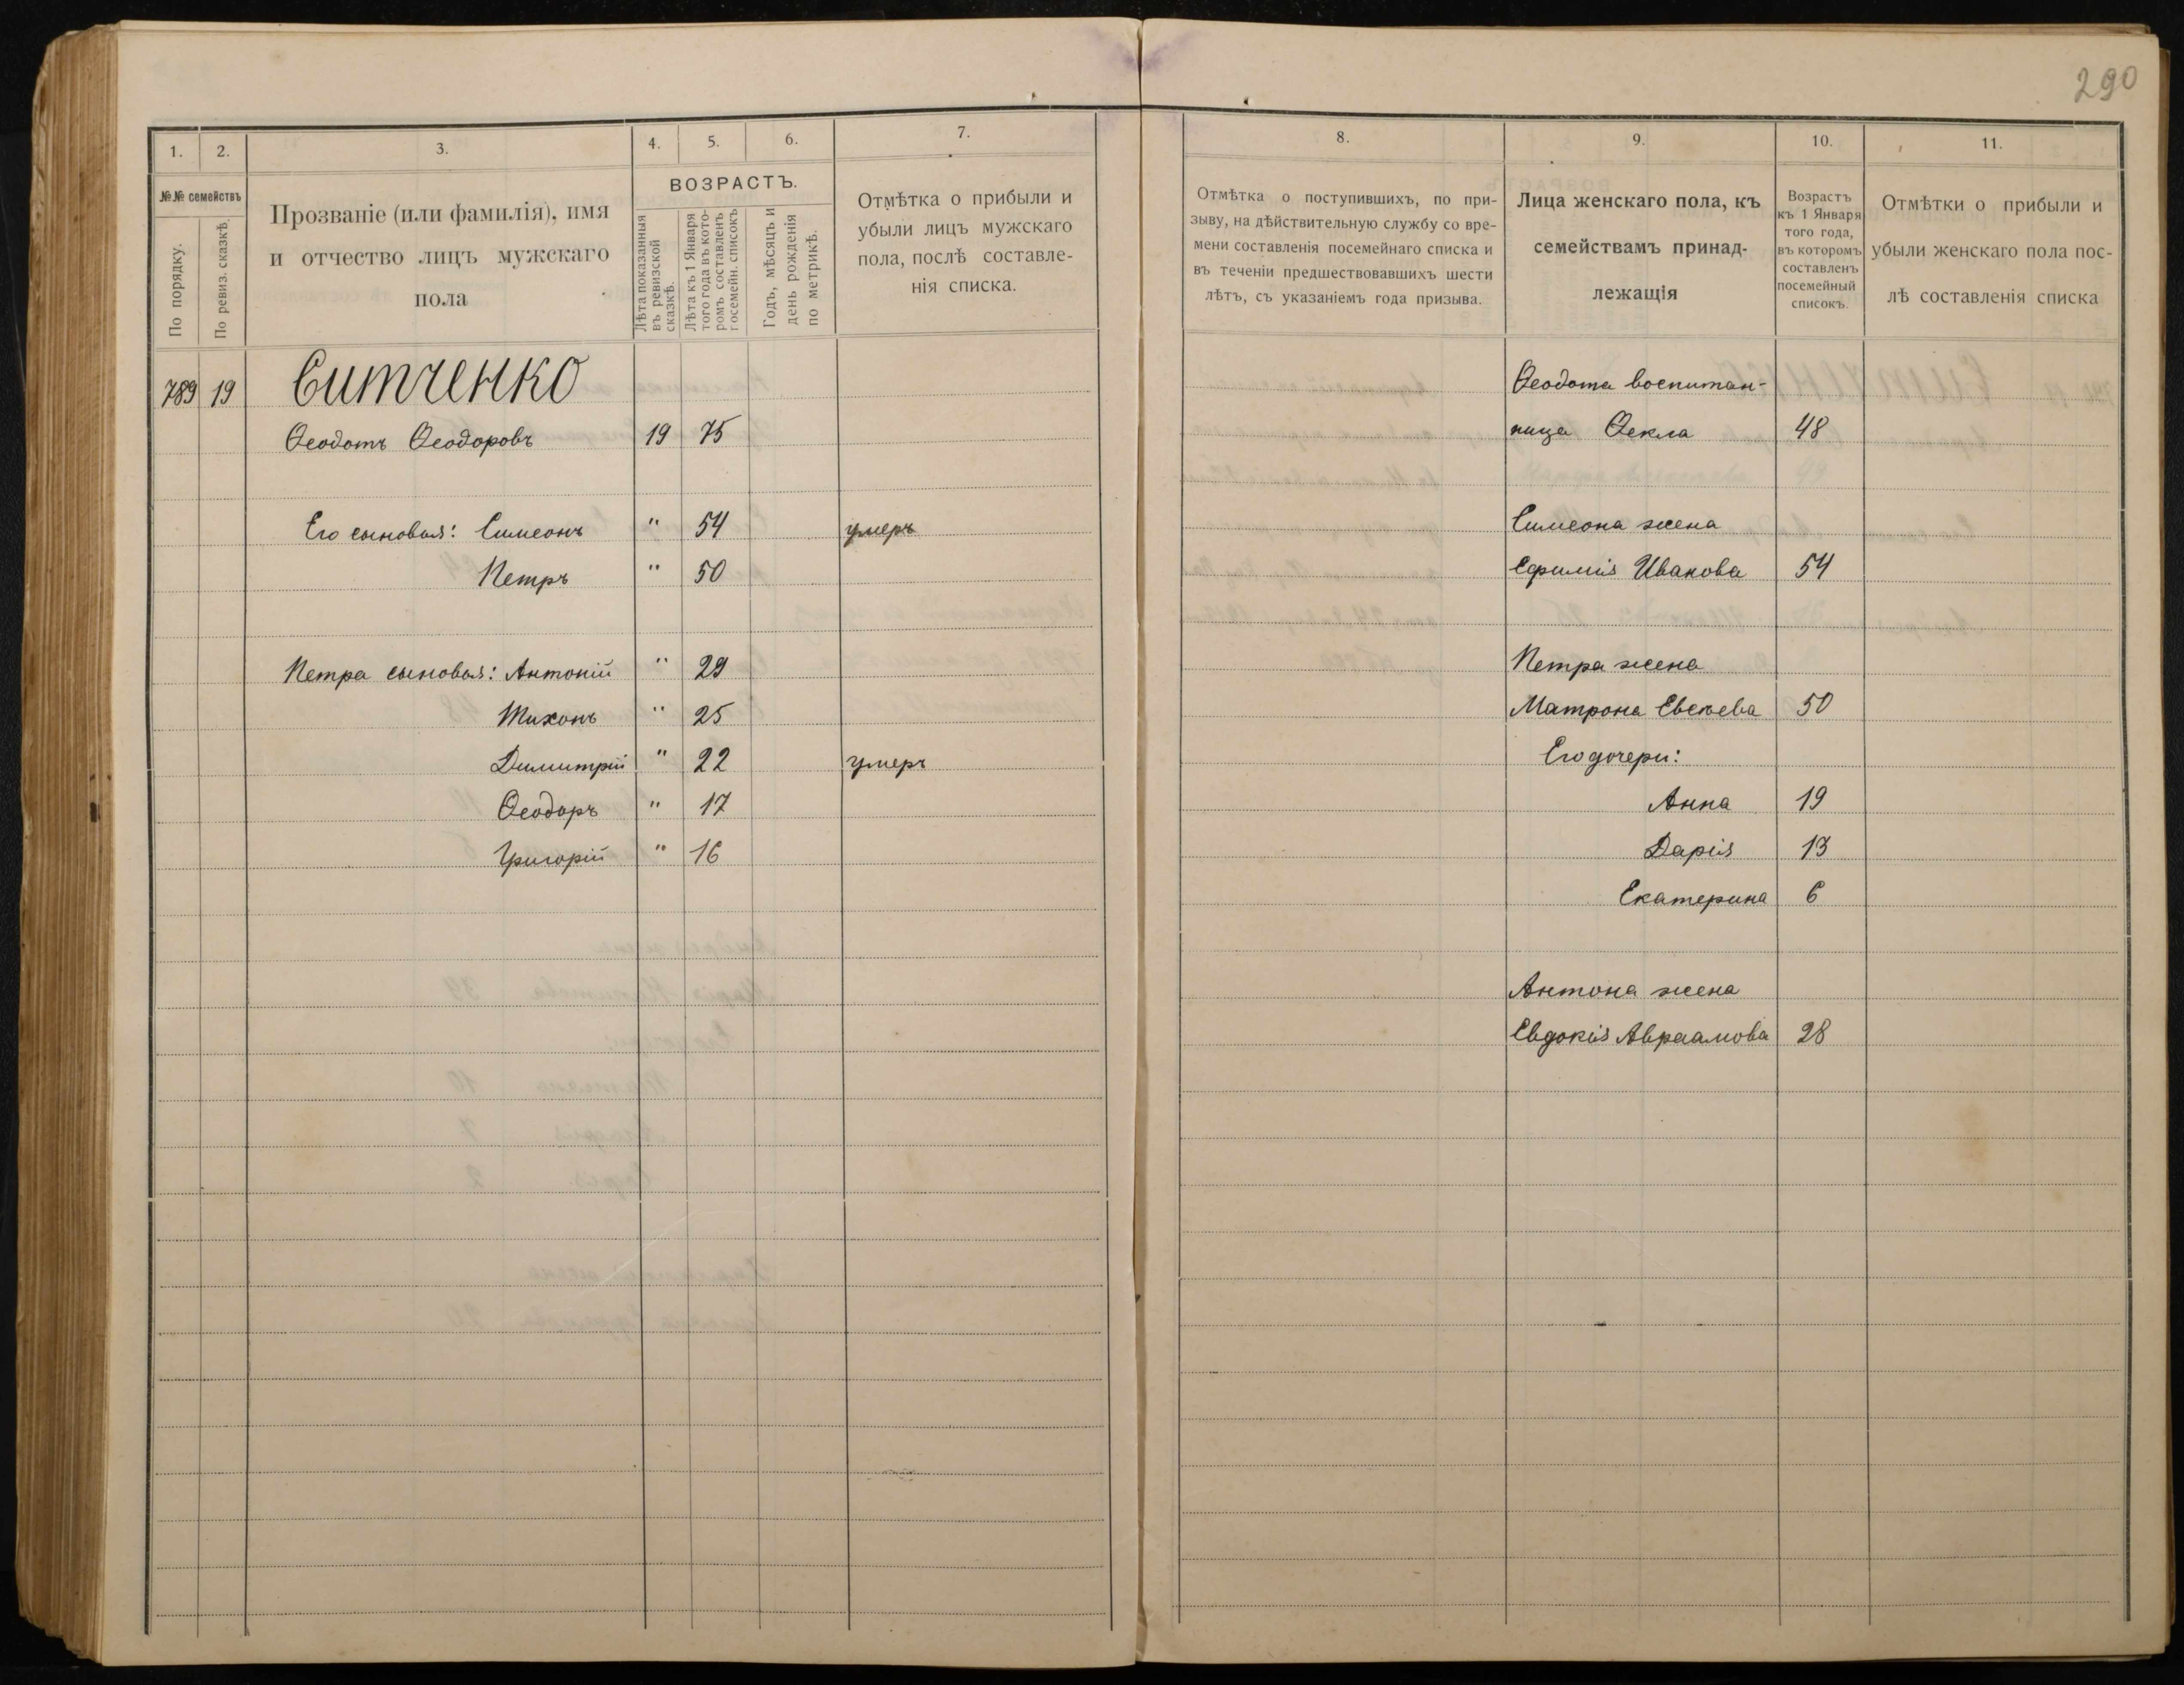 290
1. 2. 3. 4. 5. 6. 7.
№№ семействъ
По порядку.
По ревиз. сказкѣ.
Прозваніе (или фамилія), имя
и отчество лицъ мужскаго
пола
ВОЗРАСТЪ.
Лѣта показанныя
въ ревизской
сказкѣ.
Лѣта къ 1 Января
того года въ кото-
ромъ составленъ
посемейн. списокъ
Годъ, мѣсяцъ и
день рожденія
по метрикѣ.
Отмѣтка о прибыли и
убыли лицъ мужскаго
пола, послѣ составле-
нія списка.
789 19 Ситченко
Ѳеодотъ Ѳеодоровъ 19 75
Его сыновья: Симеонъ " 54 умеръ
Петръ " 50
Петра сыновья: Антоній " 29
Тихонъ " 25
Димитрій " 22 умеръ
Ѳеодоръ " 17
Григорій " 16
8. 9. 10. 11.
Отмѣтка о поступившихъ, по при-
зыву, на дѣйствительную службу со вре-
мени составленія посемейнаго списка и
въ теченіи предшествовавшихъ шести
лѣтъ, съ указаніемъ года призыва.
Лица женскаго пола, къ
семействамъ принад-
лежащія
Возрастъ
къ 1 Января
того года,
въ которомъ
составленъ
посемейный
списокъ.
Отмѣтки о прибыли и
убыли женскаго пола пос-
лѣ составленія списка
Ѳеодота воспитан-
ница Ѳекла 48
Симеона жена
Ефимія Иванова 54
Петра жена
Матрона 50
Его дочери:
Анна 19
Дарія 13
Екатерина 6
Антона жена
Евдокія Авраамова 28